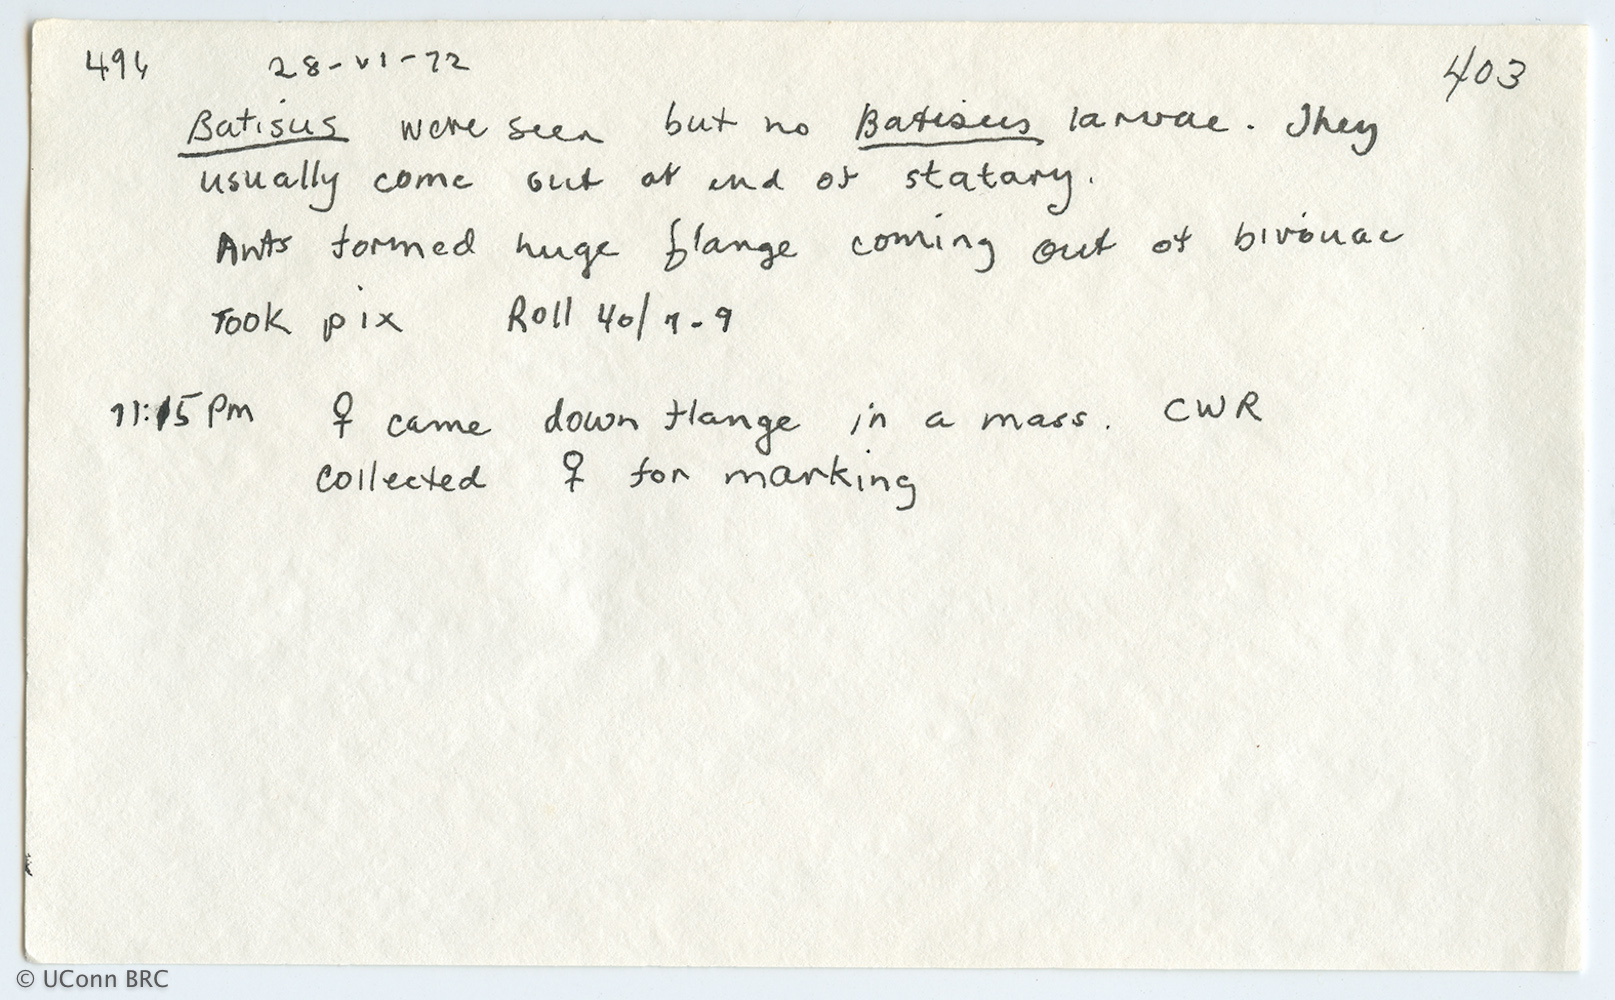 496 28-VI-72 403
Batisus were seen but no Batisus larvae. They
usually come out at end of statary.
Ants formed huge flange coming out of bivouac
Took pix Roll 40/7-9
11:15 PM ♀ came down flange in a mass. CWR
collected ♀ for marking
© UConn BRC